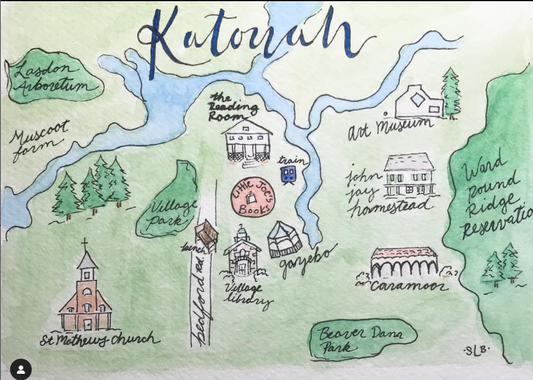 Katonah
Lasdon
Arboretum
Muscoot
farm
the
Reading
Room
Art Museum
train
john
jay
homestead
Ward
Pound
Ridge
Reservatio
Little Joe's
Books
Village
Park
bench
bedford Rd.
Village
library
gazebo
Caramoor
St Mathews Church
Beaver Dam
Park
·SLB·